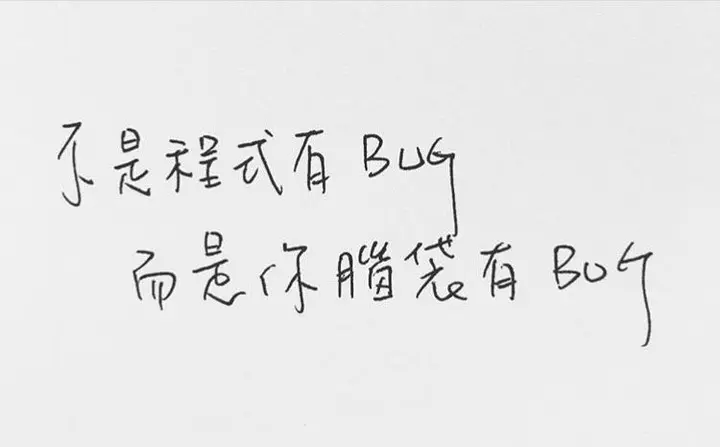 不是程式有 BUG
而是你腦袋有 BUG